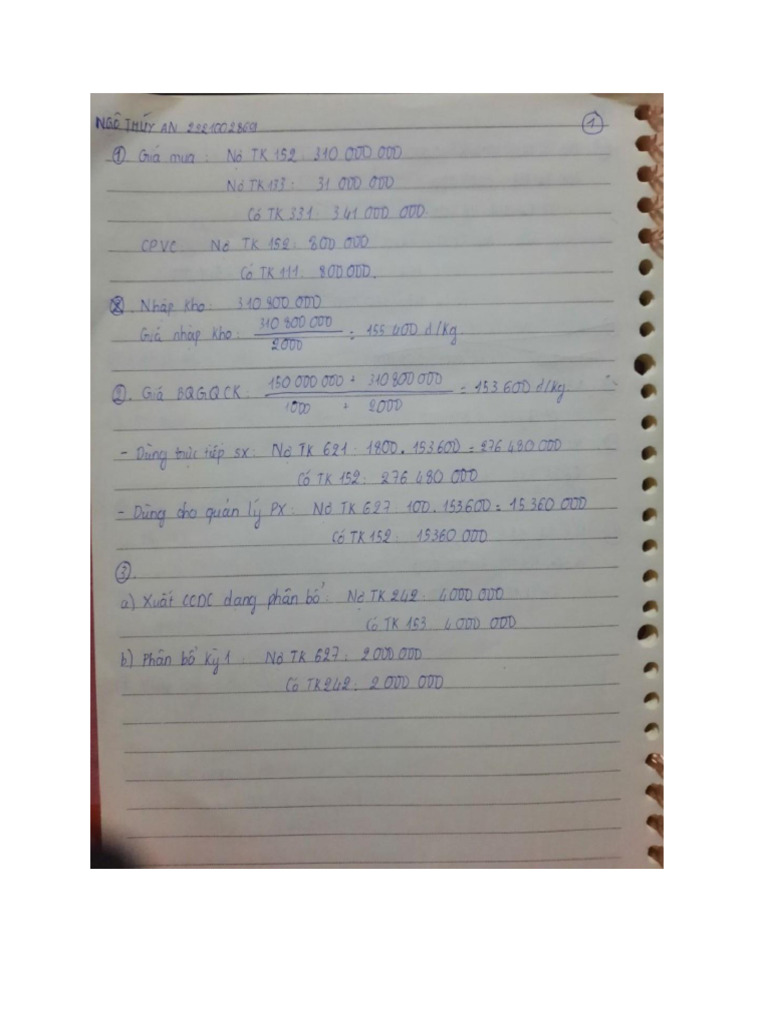 NGÔ THÚY AN 2321002869
①
① Giá mua : Nợ TK 152 : 310 000 000
Nợ TK133 : 31 000 000
Có TK 331 : 341 000 000.
CPVC Nợ TK 152 : 800 000
Có TK 111 : 800 000.
Nhập kho : 310 800 000
Giá nhập kho : 310 800 000 / 2000 = 155 400 đ/kg.
②. Giá BQGQCK : 150 000 000 + 310 800 000 / 1000 + 2000 = 153 600 đ/kg.
- Dùng trực tiếp sx : Nợ TK 621 : 1800 . 153600 = 276 480 000
Có TK 152 : 276 480 000
- Dùng cho quản lý PX : Nợ TK 627 : 100 . 153600 = 15 360 000
Có TK 152 : 15360 000
③.
a) Xuất CCDC dạng phân bổ : Nợ TK 242 : 4000 000
Có TK 153 4 000 000
b) Phân bổ kỳ 1 : Nợ TK 627 : 2 000 000
Có TK242 : 2 000 000